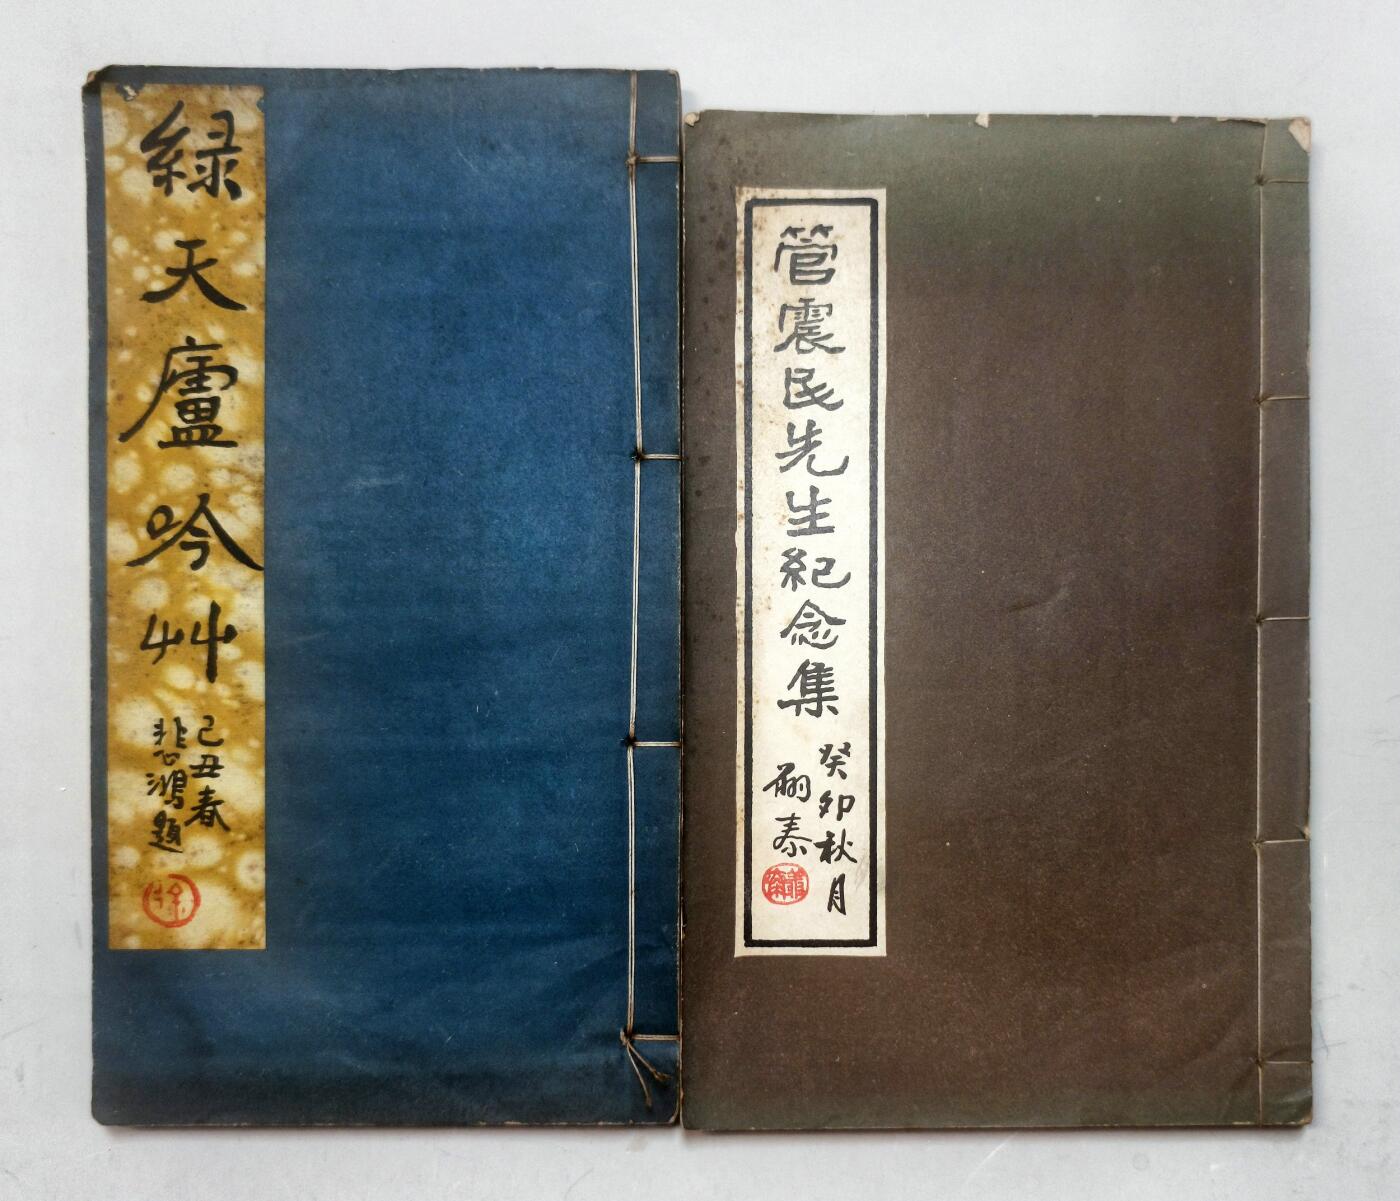 緑天廬吟艸
己丑春
悲鴻題
徐
管震民先生紀念集
癸卯秋月
嗣泰